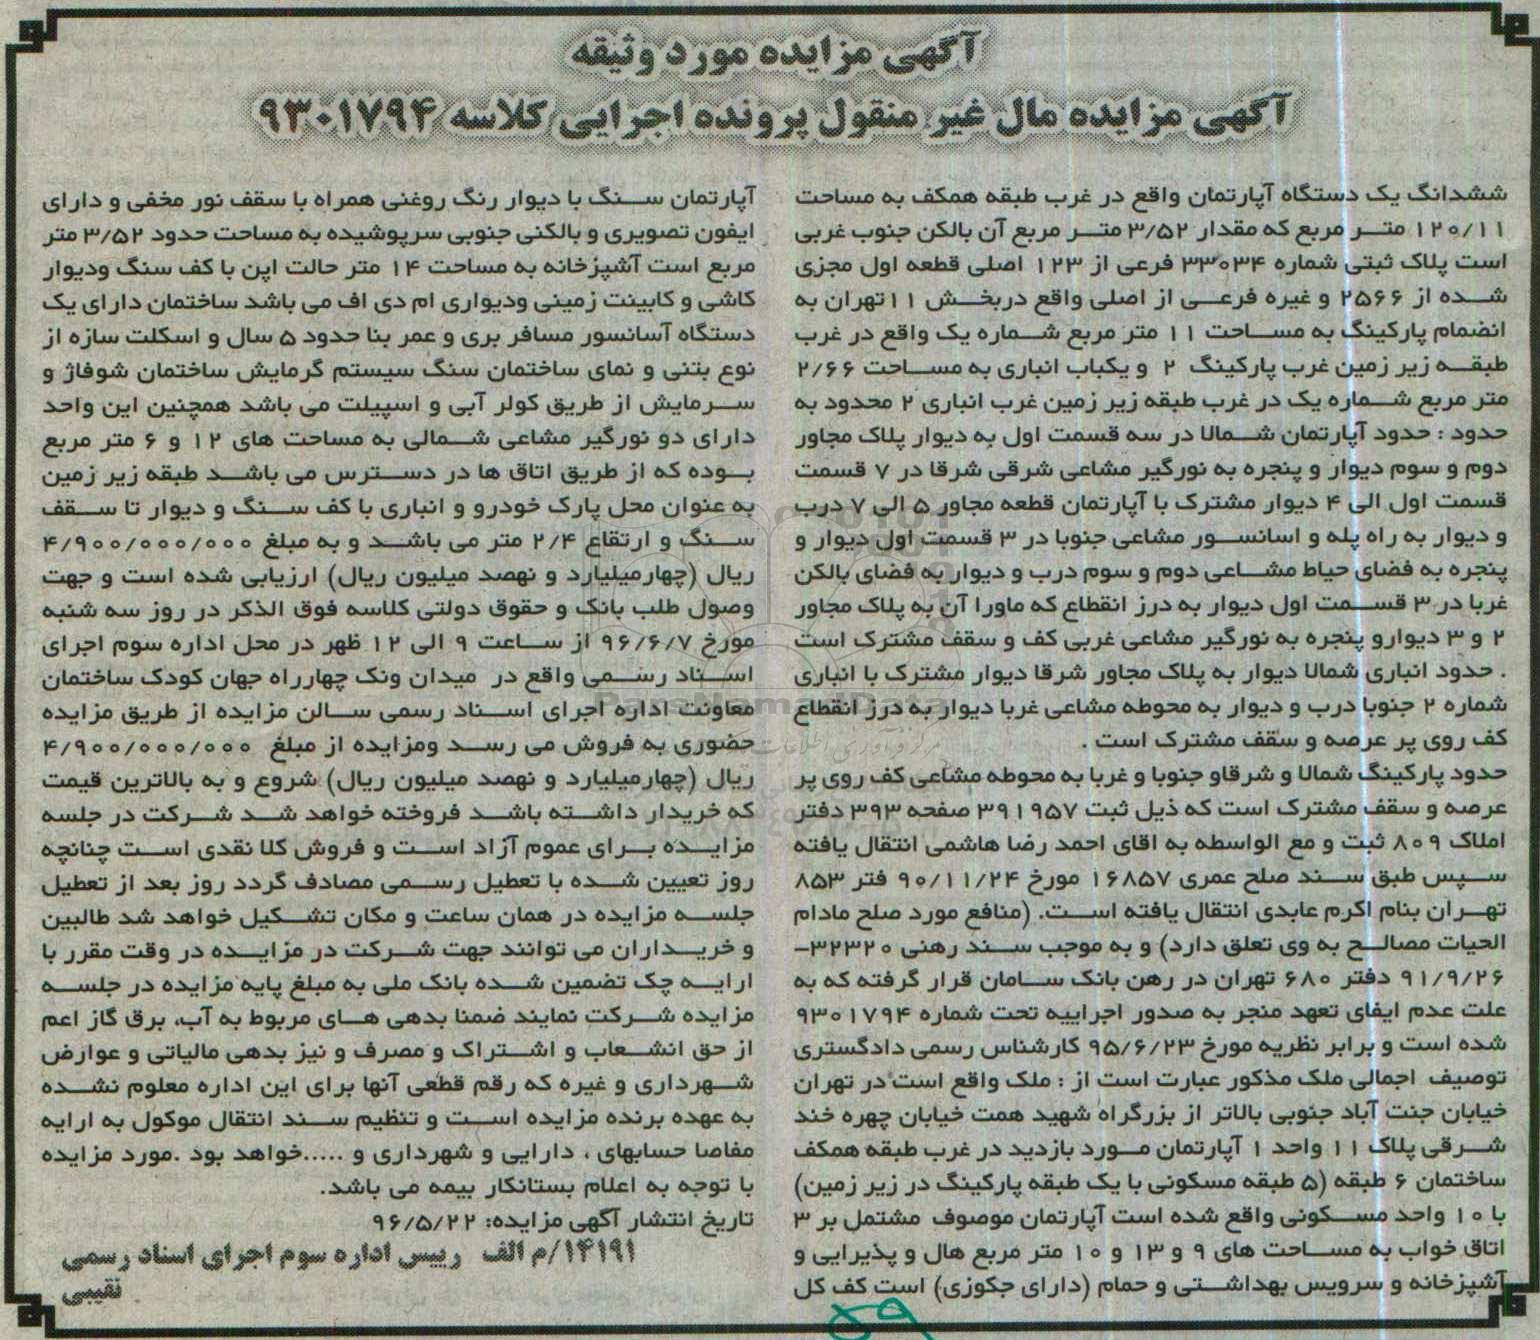 آگهی مزایده مورد وثیقه
آگهی مزایده مال غیر منقول پرونده اجرایی کلاسه ۹۳۰۱۷۹۴
ششدانگ یک دستگاه آپارتمان واقع در غرب طبقه همکف به مساحت
۱۲۰/۱۱ متر مربع که مقدار ۳/۵۲ متر مربع آن بالکن جنوب غربی
است پلاک ثبتی شماره ۳۳۰۳۴ فرعی از ۱۲۳ اصلی قطعه اول مجزی
شده از ۲۵۶۶ و غیره فرعی از اصلی واقع دربخش ۱۱تهران به
انضمام پارکینگ به مساحت ۱۱ متر مربع شماره یک واقع در غرب
طبقه زیر زمین غرب پارکینگ ۲ و یکباب انباری به مساحت ۲/۶۶
متر مربع شماره یک در غرب طبقه زیر زمین غرب انباری ۲ محدود به
حدود : حدود آپارتمان شمالا در سه قسمت اول به دیوار پلاک مجاور
دوم و سوم دیوار و پنجره به نورگیر مشاعی شرقی شرقا در ۷ قسمت
قسمت اول الی ۴ دیوار مشترک با آپارتمان قطعه مجاور ۵ الی ۷ درب
و دیوار به راه پله و اسانسور مشاعی جنوبا در ۳ قسمت اول دیوار و
پنجره به فضای حیاط مشاعی دوم و سوم درب و دیوار به فضای بالکن
غربا در ۳ قسمت اول دیوار به درز انقطاع که ماورا آن به پلاک مجاور
۲ و ۳ دیوارو پنجره به نورگیر مشاعی غربی کف و سقف مشترک است
. حدود انباری شمالا دیوار به پلاک مجاور شرقا دیوار مشترک با انباری
شماره ۲ جنوبا درب و دیوار به محوطه مشاعی غربا دیوار به درز انقطاع
کف روی پر عرصه و سقف مشترک است .
حدود پارکینگ شمالا و شرقاو جنوبا و غربا به محوطه مشاعی کف روی پر
عرصه و سقف مشترک است که ذیل ثبت ۳۹۱۹۵۷ صفحه ۳۹۳ دفتر
املاک ۸۰۹ ثبت و مع الواسطه به اقای احمد رضا هاشمی انتقال یافته
سپس طبق سند صلح عمری ۱۶۸۵۷ مورخ ۹۰/۱۱/۲۴ فتر ۸۵۳
تهران بنام اکرم عابدی انتقال یافته است. (منافع مورد صلح مادام
الحیات مصالح به وی تعلق دارد) و به موجب سند رهنی ۳۲۳۲۰–
۹۱/۹/۲۶ دفتر ۶۸۰ تهران در رهن بانک سامان قرار گرفته که به
علت عدم ایفای تعهد منجر به صدور اجراییه تحت شماره ۹۳۰۱۷۹۴
شده است و برابر نظریه مورخ ۹۵/۶/۲۳ کارشناس رسمی دادگستری
توصیف اجمالی ملک مذکور عبارت است از : ملک واقع است در تهران
خیابان جنت آباد جنوبی بالاتر از بزرگراه شهید همت خیابان چهره خند
شرقی پلاک ۱۱ واحد ۱ آپارتمان مورد بازدید در غرب طبقه همکف
ساختمان ۶ طبقه (۵ طبقه مسکونی با یک طبقه پارکینگ در زیر زمین)
با ۱۰ واحد مسکونی واقع شده است آپارتمان موصوف مشتمل بر ۳
اتاق خواب به مساحت های ۹ و ۱۳ و ۱۰ متر مربع هال و پذیرایی و
آشپزخانه و سرویس بهداشتی و حمام (دارای جکوزی) است کف کل
آپارتمان سنگ با دیوار رنگ روغنی همراه با سقف نور مخفی و دارای
ایفون تصویری و بالکنی جنوبی سرپوشیده به مساحت حدود ۳/۵۲ متر
مربع است آشپزخانه به مساحت ۱۴ متر حالت اپن با کف سنگ ودیوار
کاشی و کابینت زمینی ودیواری ام دی اف می باشد ساختمان دارای یک
دستگاه آسانسور مسافر بری و عمر بنا حدود ۵ سال و اسکلت سازه از
نوع بتنی و نمای ساختمان سنگ سیستم گرمایش ساختمان شوفاژ و
سرمایش از طریق کولر آبی و اسپیلت می باشد همچنین این واحد
دارای دو نورگیر مشاعی شمالی به مساحت های ۱۲ و ۶ متر مربع
بوده که از طریق اتاق ها در دسترس می باشد طبقه زیر زمین
به عنوان محل پارک خودرو و انباری با کف سنگ و دیوار تا سقف
سنگ و ارتقاع ۲/۴ متر می باشد و به مبلغ ۴/۹۰۰/۰۰۰/۰۰۰
ریال (چهارمیلیارد و نهصد میلیون ریال) ارزیابی شده است و جهت
وصول طلب بانک و حقوق دولتی کلاسه فوق الذکر در روز سه شنبه
مورخ ۹۶/۶/۷ از ساعت ۹ الی ۱۲ ظهر در محل اداره سوم اجرای
اسناد رسمی واقع در میدان ونک چهارراه جهان کودک ساختمان
معاونت اداره اجرای اسناد رسمی سالن مزایده از طریق مزایده
حضوری به فروش می رسد ومزایده از مبلغ ۴/۹۰۰/۰۰۰/۰۰۰
ریال (چهارمیلیارد و نهصد میلیون ریال) شروع و به بالاترین قیمت
که خریدار داشته باشد فروخته خواهد شد شرکت در جلسه
مزایده برای عموم آزاد است و فروش کلا نقدی است چنانچه
روز تعیین شده با تعطیل رسمی مصادف گردد روز بعد از تعطیل
جلسه مزایده در همان ساعت و مکان تشکیل خواهد شد طالبین
و خریداران می توانند جهت شرکت در مزایده در وقت مقرر با
ارایه چک تضمین شده بانک ملی به مبلغ پایه مزایده در جلسه
مزایده شرکت نمایند ضمنا بدهی های مربوط به آب، برق گاز اعم
از حق انشعاب و اشتراک و مصرف و نیز بدهی مالیاتی و عوارض
شهرداری و غیره که رقم قطعی آنها برای این اداره معلوم نشده
به عهده برنده مزایده است و تنظیم سند انتقال موکول به ارایه
مفاصا حسابهای ، دارایی و شهرداری و .....خواهد بود .مورد مزایده
با توجه به اعلام بستانکار بیمه می باشد.
تاریخ انتشار آگهی مزایده: ۹۶/۵/۲۲
۱۴۱۹۱/م الف رییس اداره سوم اجرای اسناد رسمی
نقیبی
۵۹